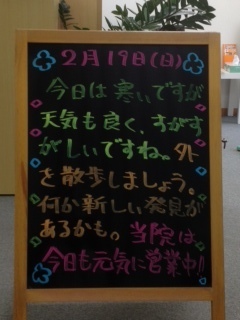 2月19日(日)
今日は寒いですが
天気も良く、すがす
がしいですね。外
を散歩しましょう。
何か新しい発見が
あるかも。当院は
今日も元気に営業中!!